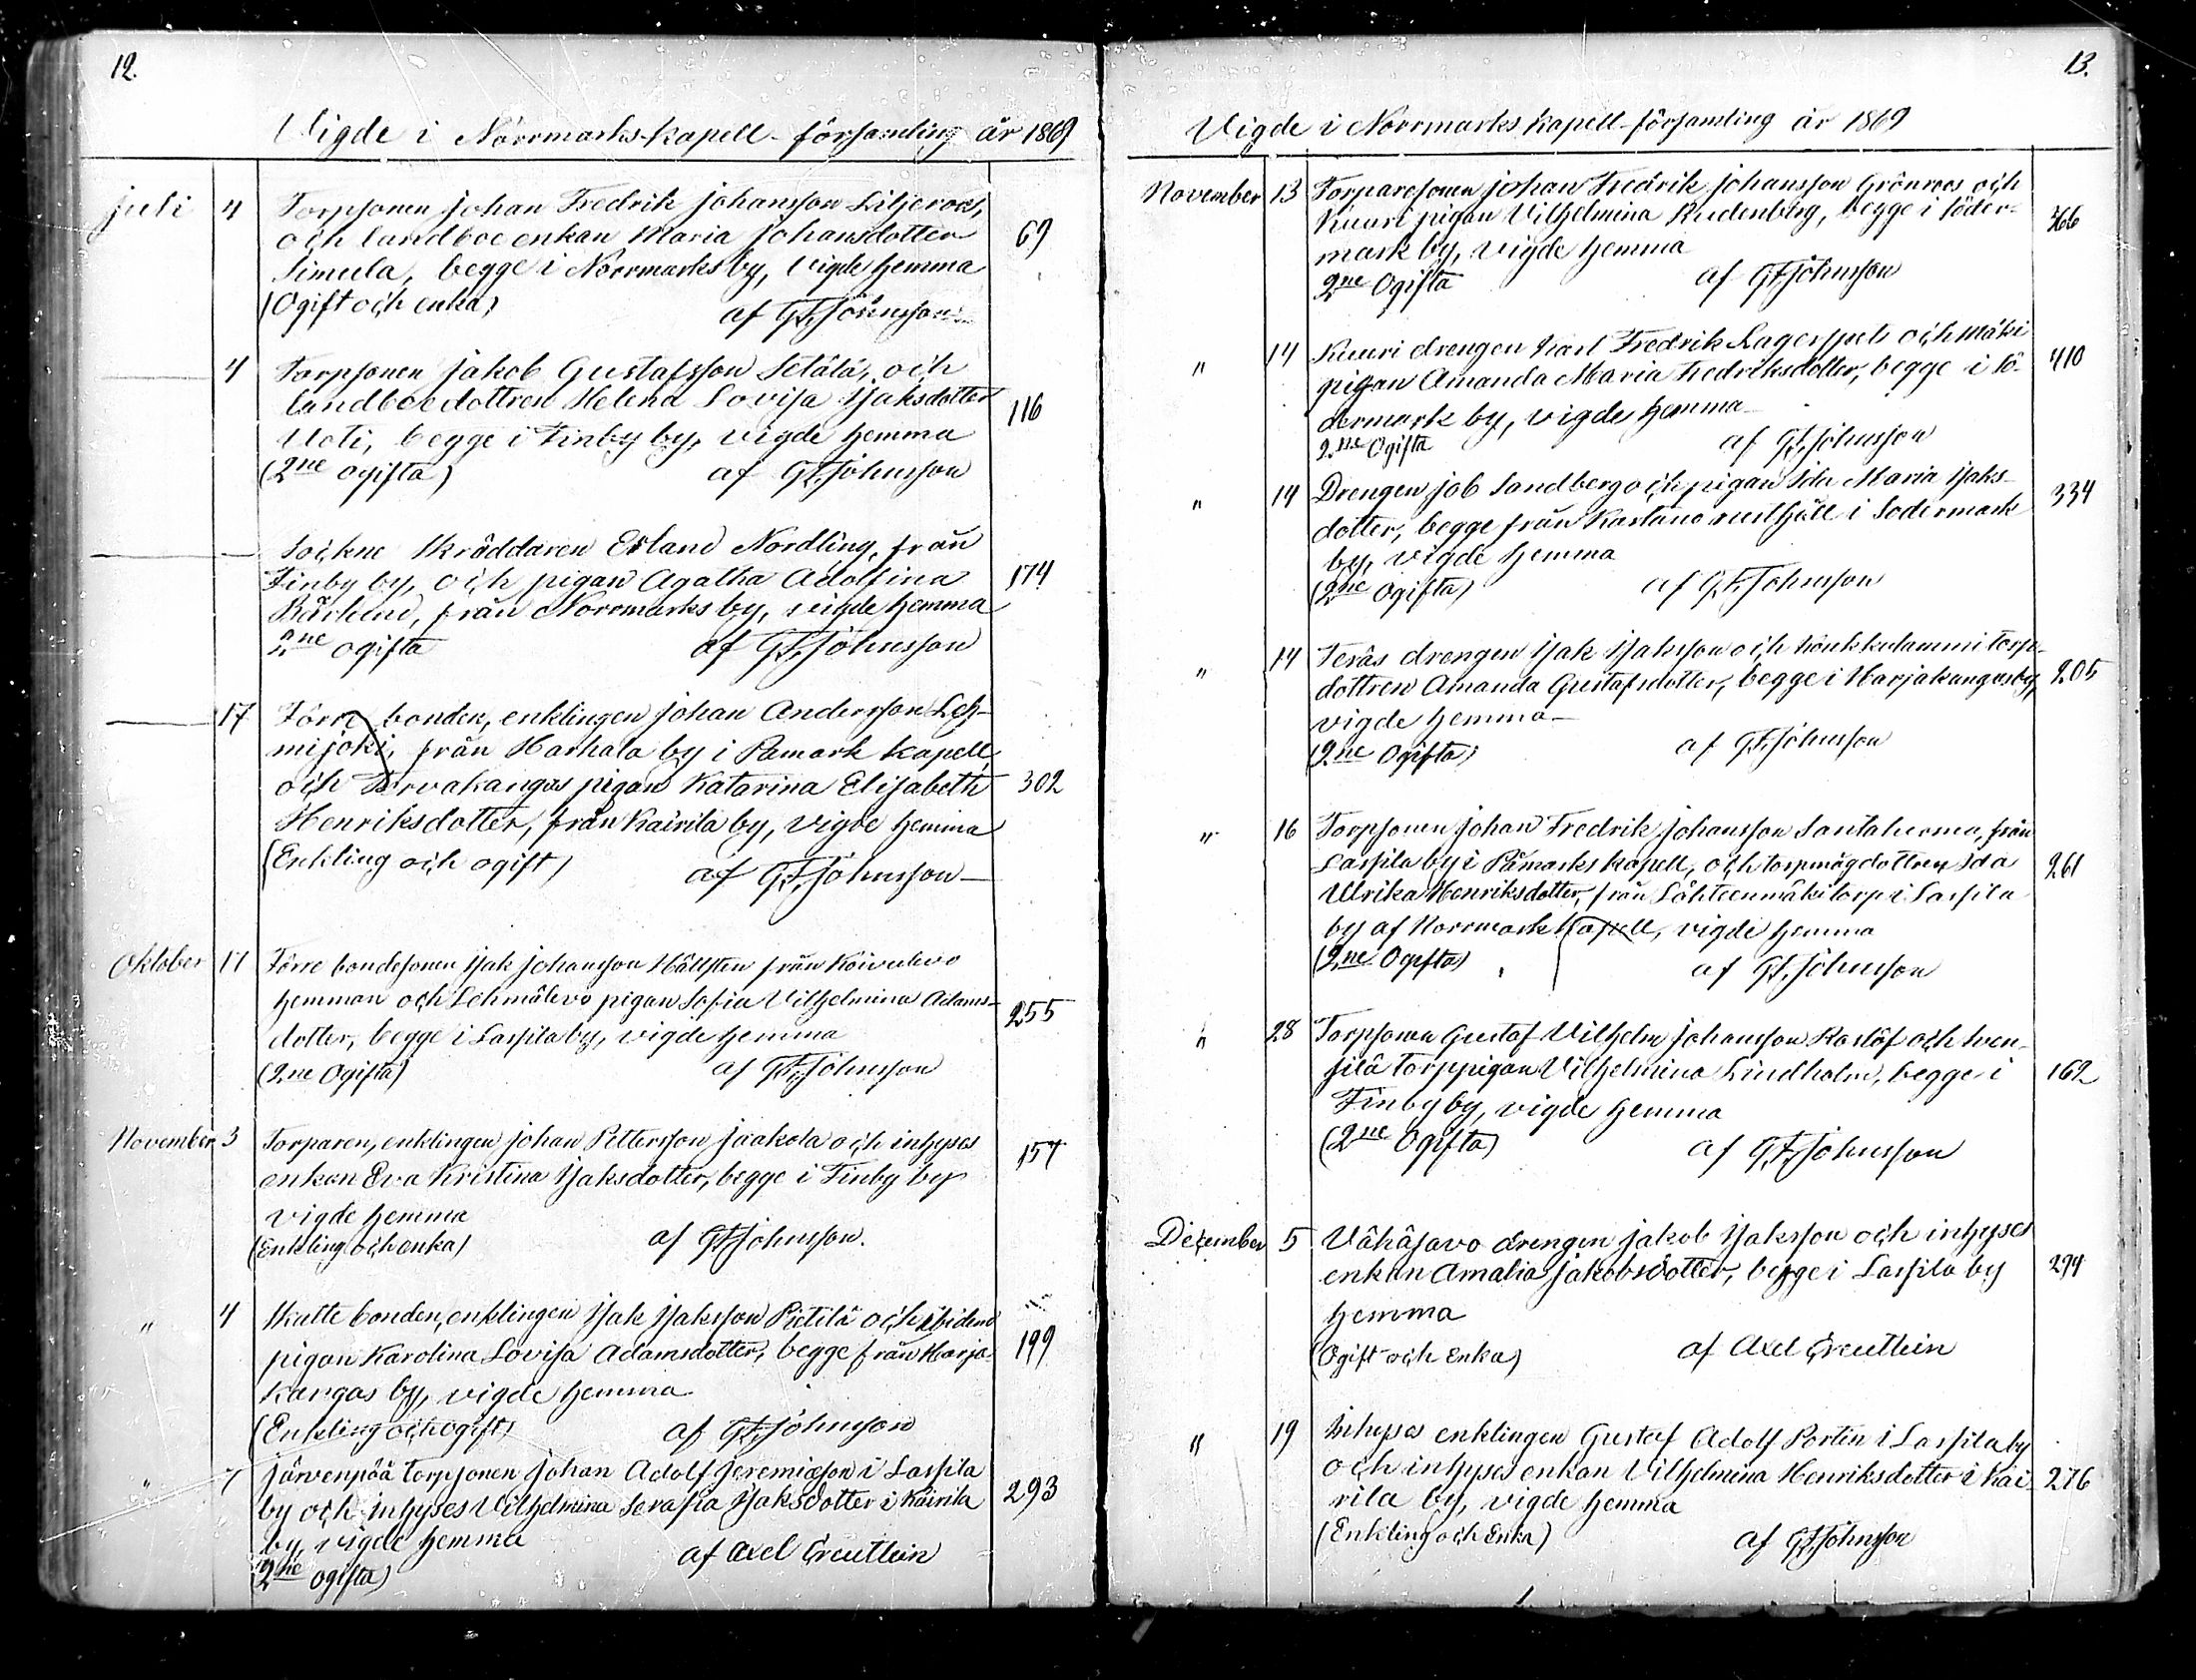 12.
Vigde i Norrmarks-kapell-församling år 1869
juli 4 Torpsonen Johan Fredrik Johansson Liljeroos,
och landboe enkan Maria Johansdotter 69
Simula, begge i Norrmarks by, vigde hemma
(Ogift och enka) af G.F. Johnsson
4 Torpsonen Jakob Gustafsson Setälä, och
landboe dottren Helena Lovisa Isaksdotter 116
Uoti, begge i Finby by, vigde hemma
(2ne ogifta) af G.F. Johnsson
Sockne skräddaren Erland Nordling, från
Finby by, och pigan Agatha Adolfina 174
från Norrmarks by, vigde hemma
2ne ogifta af G.F. Johnsson
17 Törre bonden, enklingen Johan Andersson Leh-
mijoki, från Harhala by i Pamark kapell,
och Tervakangas pigan Katarina Elisabeth 302
Henriksdotter, från Kairila by, vigde hemma
(Enkling och ogift) af G.F. Johnsson
Oktober 17 Törre bondesonen Isak Johansson Hällsten från Koivulevo
hemman och Lehmälevo pigan Sofia Vilhelmina Adams- 255
dotter, begge i Lassila by, vigde hemma
(2ne Ogifta) af G.F. Johnsson
November 3 Torparen, enklingen Johan Pettersson Jaakola och inhyses 157
enkan Eva Kristina Isaksdotter, begge i Finby by
vigde hemma
(Enkling och enka) af G.F. Johnsson.
" 4 Skatte bonden, enklingen Isak Isaksson Pietilä och ibidem
pigan Karolina Lovisa Adamsdotter, begge från Harja- 199
kangas by, vigde hemma
(Enkling och ogift) af G.F. Johnsson
" 7 Järvenpää torpsonen Johan Adolf Jeremiæson i Lassila
by och inhyses Vilhelmina Serafia Isaksdotter i Kairila 293
by, vigde hemma
(2ne ogifta) af Axel Greutlein
13.
Vigde i Norrmarks kapell-församling år 1869
November 13 Torparesonen Johan Fredrik Johansson Grönroos och
Kuuri pigan Vilhelmina Rudenberg, begge i Söder- 466
mark by, vigde hemma
2ne Ogifta af G.F. Johnsson
" 14 Kuuri drengen Karl Fredrik Lagerspets och Mäki
pigan Amanda Maria Fredriksdotter, begge i Sö- 410
dermark by, vigde hemma
2ne Ogifta af G.F. Johnsson
" 14 Drengen Job Sandberg och pigan Ida Maria Isaks- 334
dotter, begge från Kartano rusthåll i Södermark
by, vigde hemma
(2ne Ogifta) af G.F. Johnsson
" 14 Teräs drengen Isak Isaksson och torp-
dottren Amanda Gustafsdotter, begge i Harjakangas by, 205
vigde hemma
(2ne Ogifta) af G.F. Johnsson
" 16 Torpsonen Johan Fredrik Johansson Santahuma, från
Lassila by i Påmarks kapell, och torpmågdottren Ida 261
Ulrika Henriksdotter, från Lähteenmäki torp i Lassila
by af Norrmark kapell, vigde hemma
(2ne Ogifta) af G.F. Johnsson
" 28 Torpsonen Gustaf Vilhelm Johansson Roslöf och Sven-
silä torppigan Vilhelmina Lindholm, begge i 162
Finby by, vigde hemma
(2ne Ogifta) af G.F. Johnsson
December 5 Vähäsavo drengen Jakob Isaksson och inhyses
enkan Amalia Jakobsdotter, begge i Lassila by 294
hemma
(Ogift och Enka) af Axel Greutlein
" 19 Inhyses enklingen Gustaf Adolf Portin i Lassila by
och inhyses enkan Vilhelmina Henriksdotter i Kai- 276
rila by, vigde hemma
(Enkling och Enka) af G.F. Johnsson